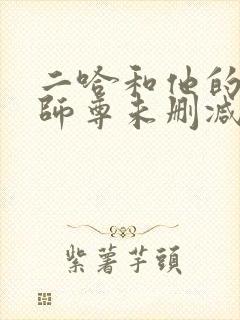 二哈和他的
師尊未删减
紫薯芋頭